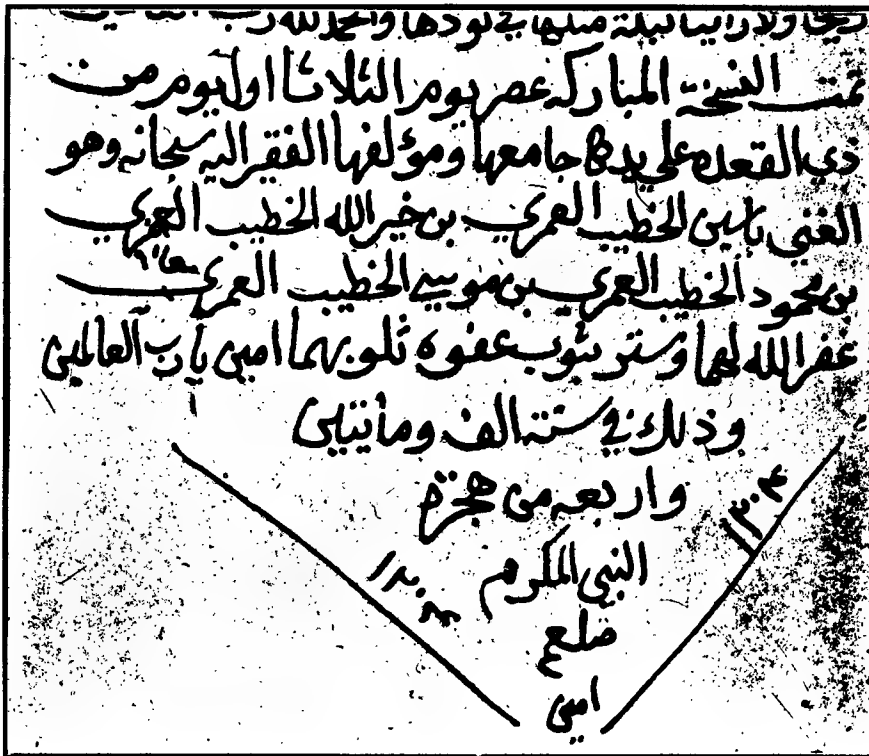 ولا راينا ليلة مثلها في والحمد لله رب
تمت النسخة المباركه عصر يوم الثلاثا اول يوم من
ذي القعده علي يد جامعها ومؤلفها الفقير اليه سبحانه وهو
الغني ياسين الخطيب العمري بن خير الله الخطيب العمري
بن محمود الخطيب العمري بن موسي الخطيب العمري
غفر الله لهما وستر بثوب عفوه ذلوبهما امين يا رب العالمين
وذلك في سنة الف ومأتيين
واربعه من هجرة
النبي المكرم
صلعم
امين
١٢٠٤
١٢٠٤